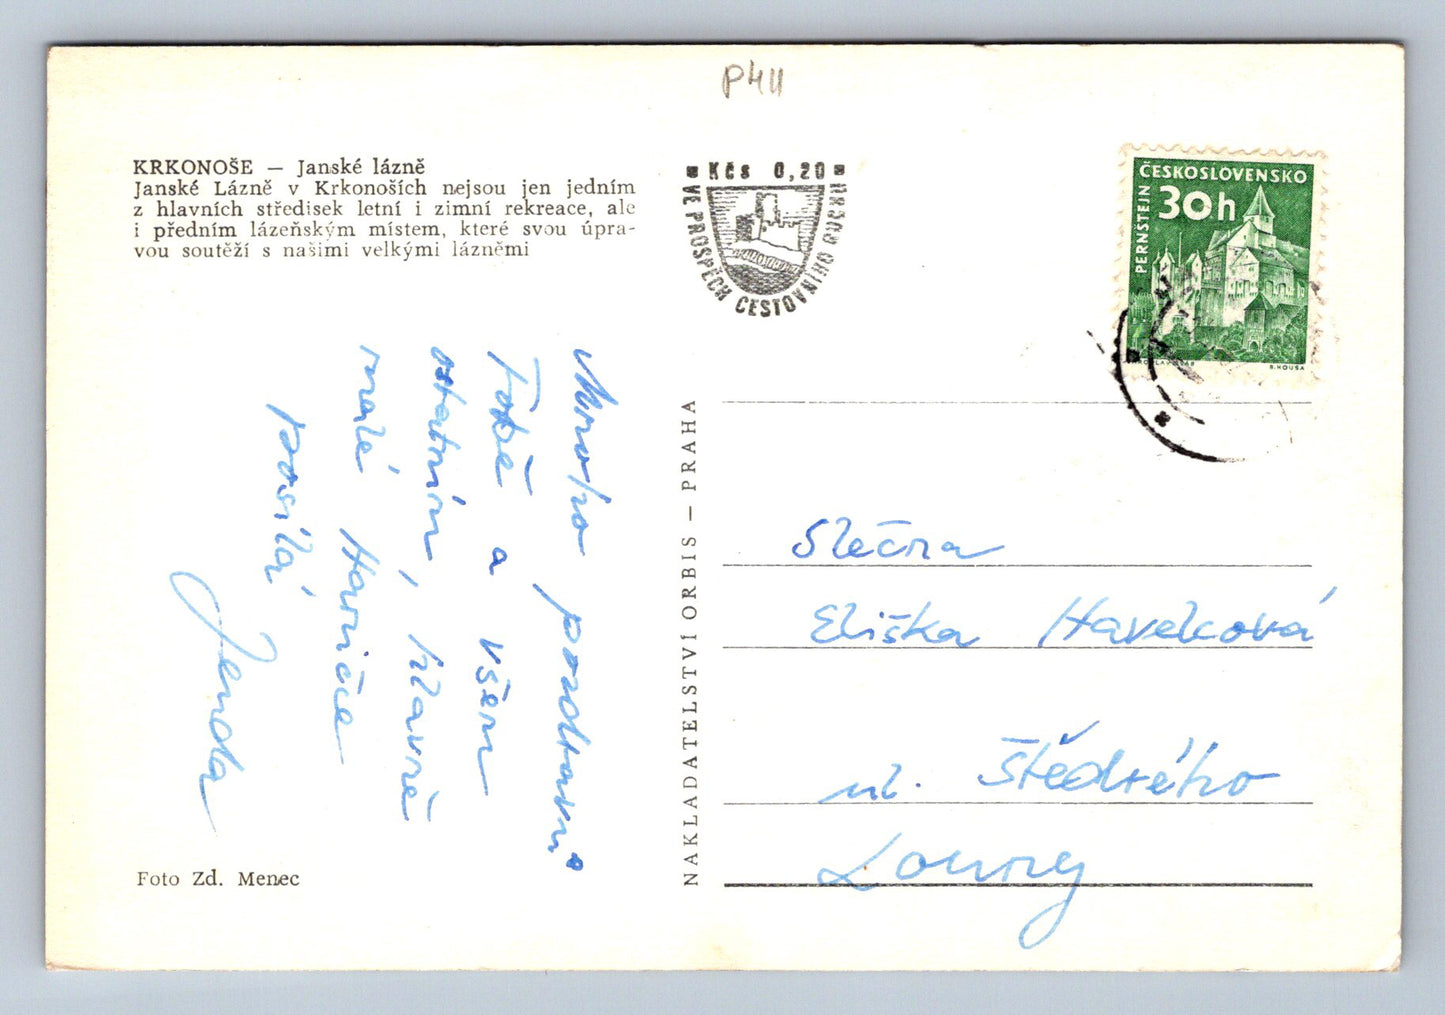 P411
KRKONOŠE — Janské lázně
Janské Lázně v Krkonoších nejsou jen jedním
z hlavních středisek letní i zimní rekreace, ale
i předním lázeňským místem, které svou úpra-
vou soutěží s našimi velkými lázněmi
Kčs 0,20
VE PROSPĚCH CESTOVNÍHO RUCHU
ČESKOSLOVENSKO
PERNŠTEJN
30h
B. HOUSA
Mnoho pozdravů
Tobě a všem
ostatním, hlavně
malé Haničce
posílá
Jenda
NAKLADATELSTVÍ ORBIS — PRAHA
Slečna
Eliška Havelcová
ul. Štědrého
Louny
Foto Zd. Menec